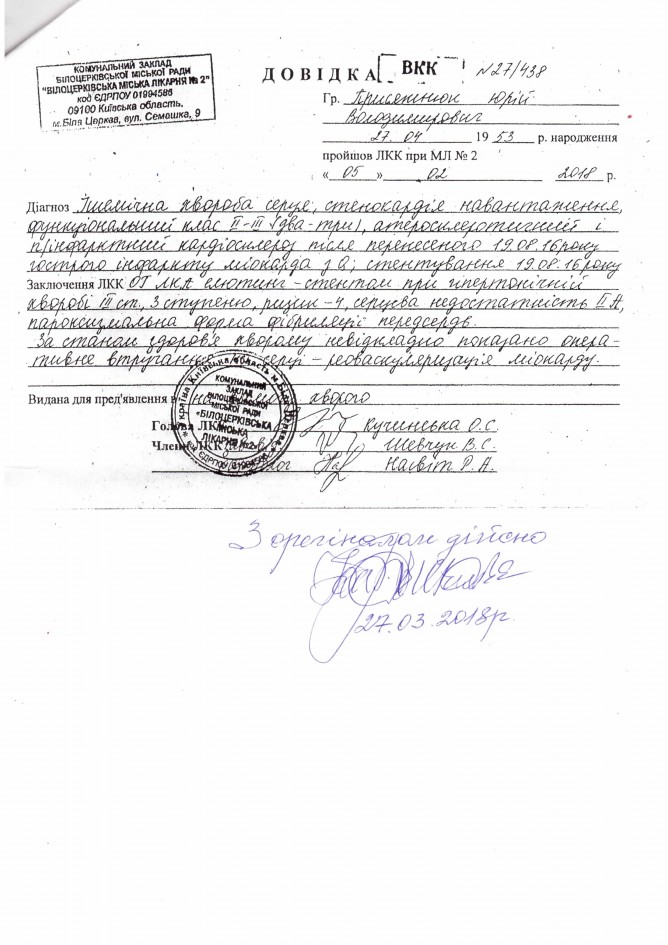 КОМУНАЛЬНИЙ ЗАКЛАД
БІЛОЦЕРКІВСЬКОЇ МІСЬКОЇ РАДИ
"БІЛОЦЕРКІВСЬКА МІСЬКА ЛІКАРНЯ № 2"
код ЄДРПОУ 01994586
09100 Київська область,
м.Біла Церква, вул. Семашка, 9
ДОВІДКА ВКК №27/438
Гр. Присяжнюк Юрій
Володимирович
27. 04 1953 р. народження
пройшов ЛКК при МЛ № 2
« 05 » 02 2018 р.
Діагноз Ішемічна хвороба серця, стенокардія навантаження,
функціональний клас II-III (два-три), атеросклеротичний і
п/інфарктний кардіосклероз після перенесеного 19.08.16 року
гострого інфаркту міокарда з Q; стентування 19.08.16 року
Заключення ЛКК ОГ ЛКА елютинг-стентом при гіпертонічній
хворобі III ст, 3 ступеню, ризик-4, серцева недостатність II А,
пароксизмальна форма фібриляції передсердь.
За станом здоров'я хворому невідкладно показано опера-
тивне втручання серці - реваскуляризація міокарду.
Видана для пред'явлення в хворого
Голова ЛКК Кучинська О.С.
Члени ЛКК Шевчук В.С.
Насвіт Р.А.
Україна Київська область м. Біла Церква
КОМУНАЛЬНИЙ
ЗАКЛАД
БІЛОЦЕРКІВСЬКОЇ
МІСЬКОЇ РАДИ
"БІЛОЦЕРКІВСЬКА
МІСЬКА
ЛІКАРНЯ №2"
З оригіналом дійсно
27.03.2018р.